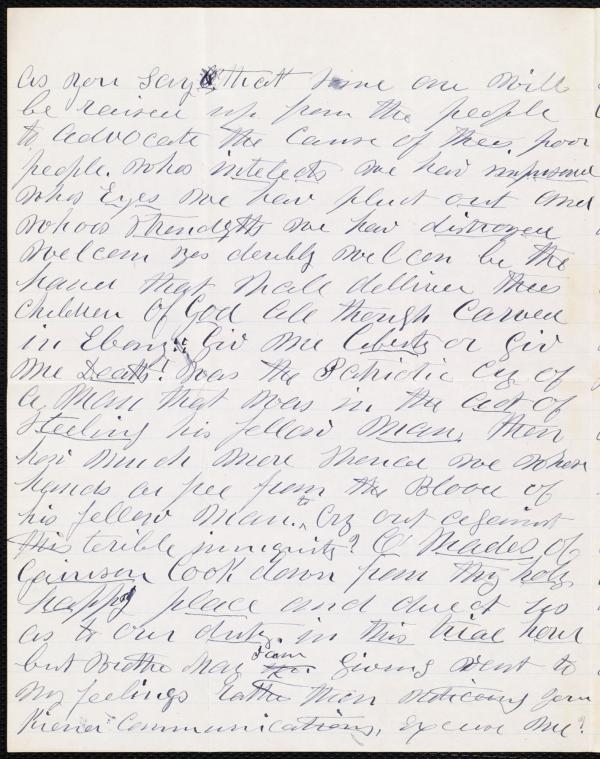 as you say that some one will
be raised up from the people
to advocate the cause of thees poor
people. whos intelects we hav imprisoned
whos Eyes we hav pluct out and
whoos strendgth we hav distroyed
welcom yes doubly welcom be the
hand that shall delliver thees
children of God all though Carved
in Ebony: Giv me liberty or Giv
me Death! was the Patriotic cry of
a Man that was in the act of
Steeling his fellow man, then
how much more should we whose
hands ar free from the Blood of
his fellow Man. to Cry out against
this terible inniquity? O' Shades of
Garrison look down from thy holy
happy place and direct us
as to our duty. in this trial hour
but Brother May I am giving vent to
my feelings rather than noticeing your
kiend Communications, excuse me?